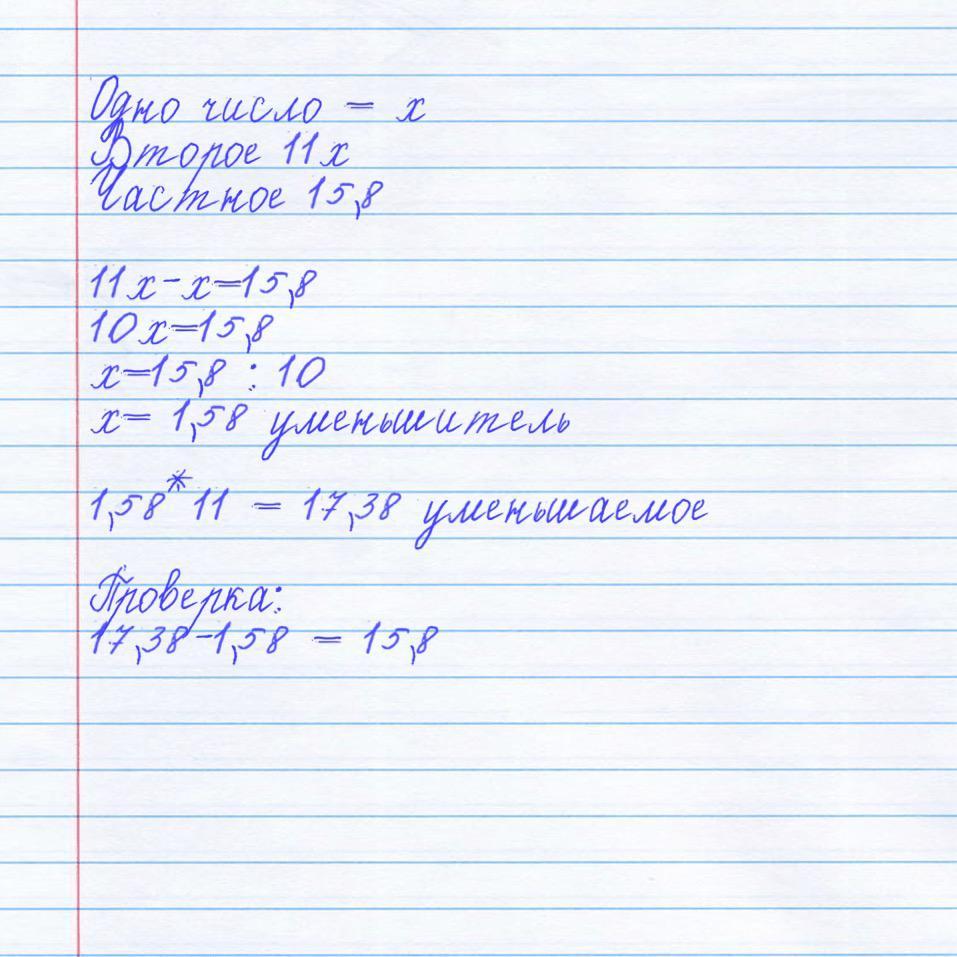 Одно число = х
Второе 11х
Частное 15,8
11х-х=15,8
10х=15,8
х=15,8 : 10
х= 1,58 уменьшитель
1,58*11 = 17,38 уменьшаемое
Проверка:
17,38-1,58 = 15,8